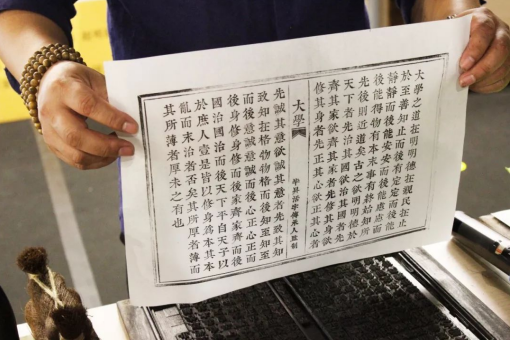 大學之道在明明德在親民在止
於至善知止而後有定定而後能
靜靜而後能安安而後能慮慮而
後能得物有本末事有終始知所
先後則近道矣古之欲明明德於
天下者先治其國欲治其國者先
齊其家欲齊其家者先修其身欲
修其身者先正其心欲正其心者
大學
昇活字傳承人
先誠其意欲誠其意者先致其知
致知在格物物格而後知至知至
而後意誠意誠而後心正心正而
後身修身修而後家齊家齊而後
國治國治而後天下平自天子以
於庶人壹是皆以修身為本其本
亂而末治者否矣其所厚者薄而
其所薄者厚未之有也